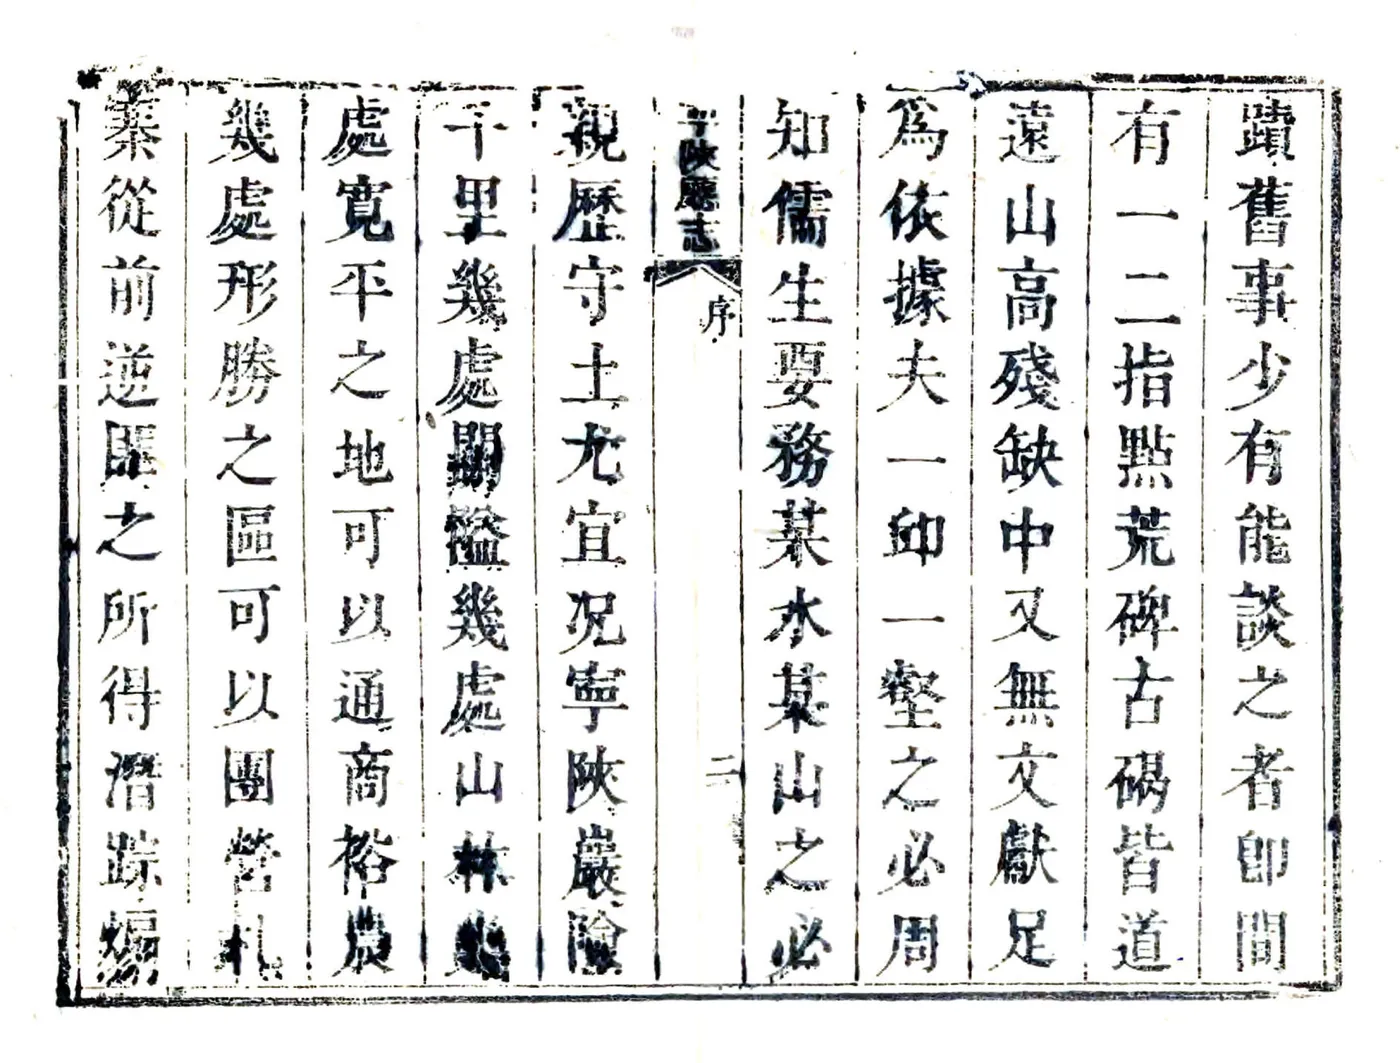 蹟舊事少有能談之者卽間
有一二指點荒碑古碣皆道
遠山高殘缺中又無文獻足
爲依據夫一邱一壑之必周
知儒生要務某水某山之必
寧陝廳志
序
二
親歷守土尤宜况寧陝巖險
千里幾處關隘幾處山林幾
處寬平之地可以通商裕農
幾處形勝之區可以團營札
寨從前逆匪之所得潛踪煽